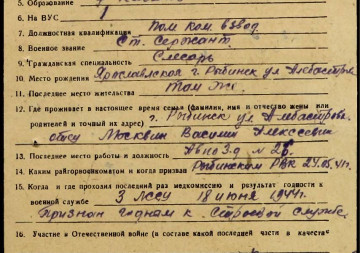 5. Образование 7 классов
6. На ВУС
7. Должностная квалификация Пом ком взвод
8. Военное звание Ст. Сержант
9. Гражданская специальность Слесарь
10. Место рождения Ярославской г. Рыбинск ул
11. Последнее место жительства Том же.
12. Где проживает в настоящее время семья (фамилия, имя и отчество жены или
родителей и точный их адрес) г. Рыбинск ул
отцу Москвин Василий Алексеевич
13. Последнее место работы и должность
14. Каким райгорвоенкоматом и когда призван Рыбинским РВК 24.05.41г.
15. Когда и где проходил последний раз медкомиссию и результат годности к
военной службе 3 ЛССУ 18 июня 1944г.
Признан годным к строевой службе
16. Участие в Отечественной войне (в составе какой последней части в качестве